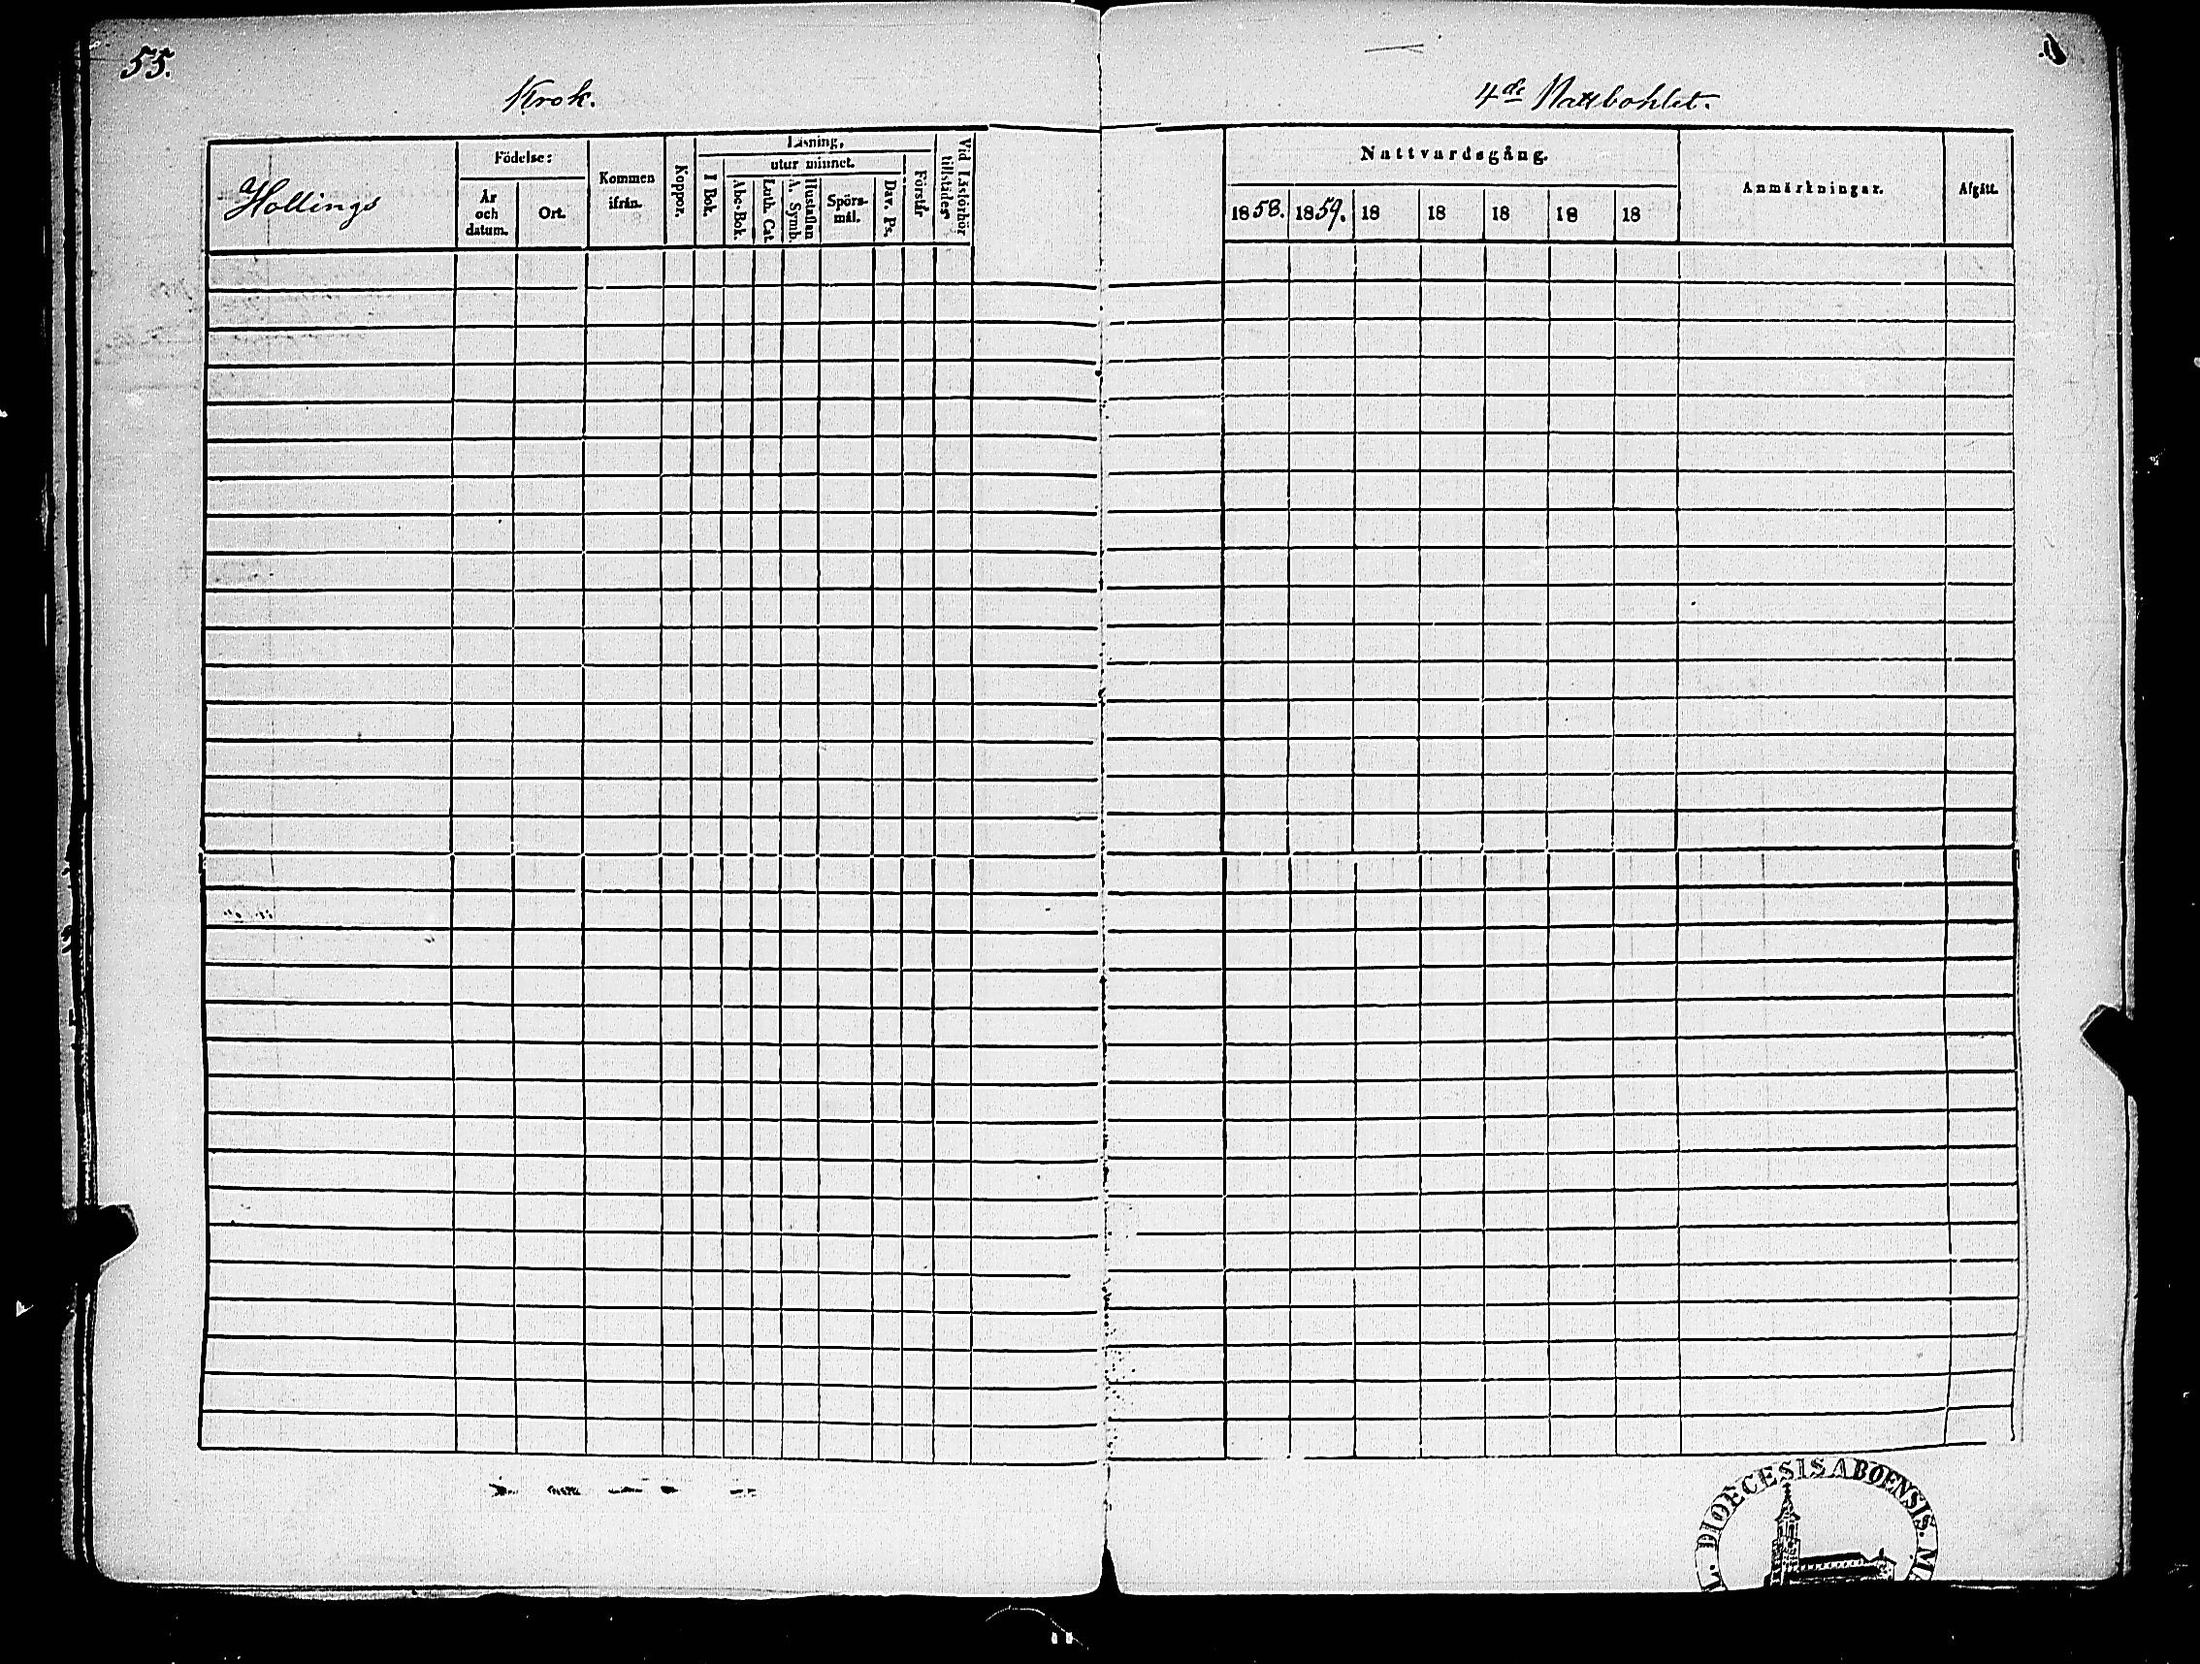 55.
Krok.
Hollings
Födelse:
År och datum.
Ort.
Kommen ifrån.
Koppor.
Läsning,
I Bok.
utur minnet.
Abc-Bok.
Luth. Cat.
Hustaflan A. Symb.
Spörsmål.
Dav. Ps.
Förstår
Vid Läsförhör tillstädes
4de Nattbohlet.
Nattvardsgång.
1858. 1859. 18 18 18 18 18
Anmärkningar.
Afgått.
DIOECESIS ABOENSIS.